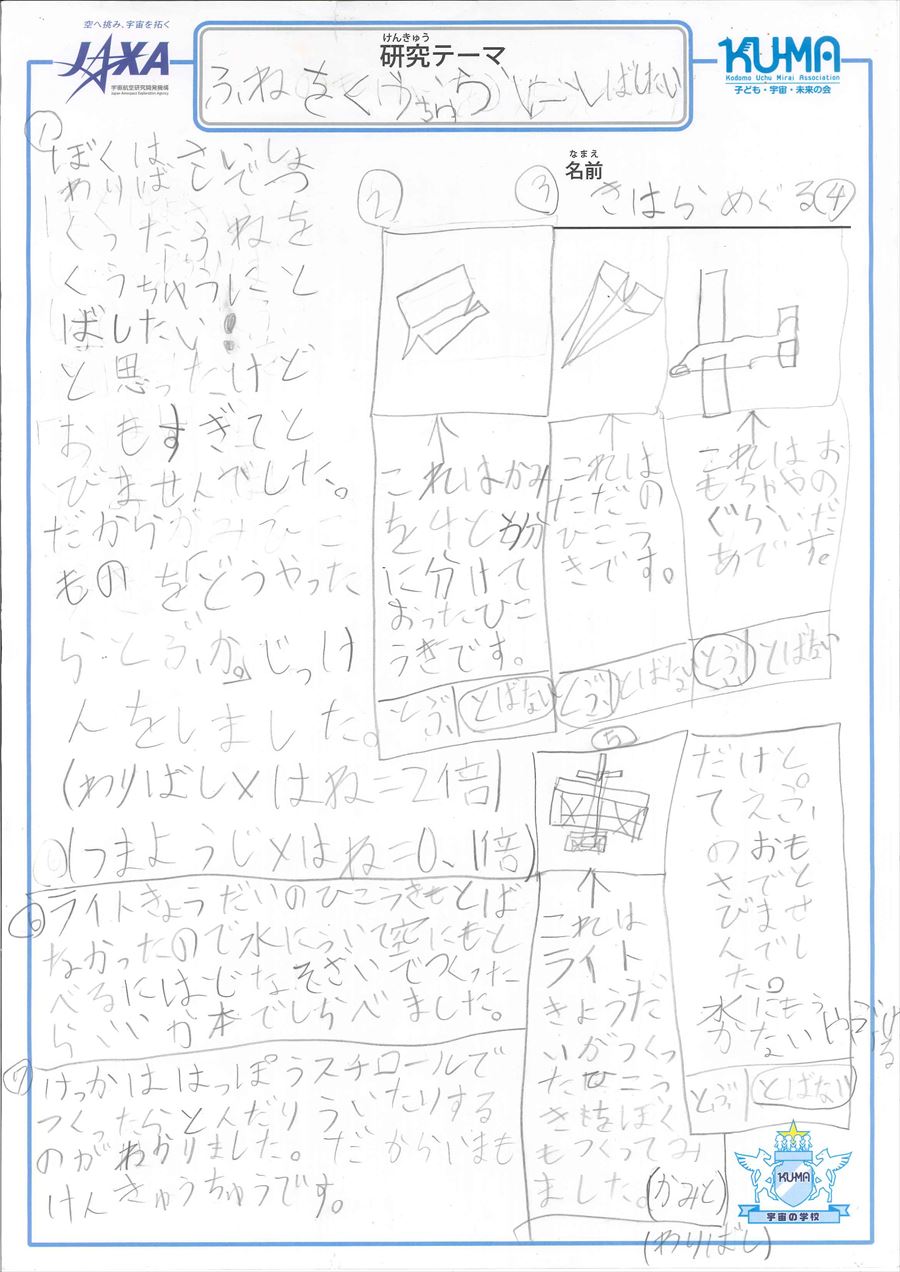 空へ挑み、宇宙を拓く
JAXA
宇宙航空研究開発機構
Japan Aerospace Exploration Agency
けんきゅう
研究テーマ
KUMA
Kodomo Uchu Mirai Association
子ども・宇宙・未来の会
なまえ
名前
きはら めぐる
①
ぼくはさいしょ
わりばしでつ
くったふねを
くうちゅうにと
ばしたい!
と思ったけど
おもすぎてと
びませんでした。
だからかみひこ
ものを「どうやった
らとぶか。」じっけ
んをしました。
(わりばし×はね=2倍)
(つまようじ×はね=0、1倍)
②
これはかみ
を4と分
に分けて
おったひこ
うきです。
とぶ とばない
③
これは
ただの
ひこう
きです。
とぶ とばない
④
これはお
もちゃやの
ぐらいだ
めです。
とぶ とばない
⑤
これは
ライト
きょうだ
いがつくっ
たひこう
きをぼく
もつくってみ
ました。(かみと)
(わりばし)
だけど。
のおも
さでと
びませ
んでし
た。
水にもう
かない
とぶ とばない
⑥
ライトきょうだいのひこうきもとば
なかったので水にういて空にもと
べるにはどんなそざいでつくった
らいいか本でしらべました。
⑦
けっかははっぽうスチロールで
つくったらとんだりういたりする
のがわかりました。だからいまも
けんきゅうちゅうです。
KUMA
宇宙の学校